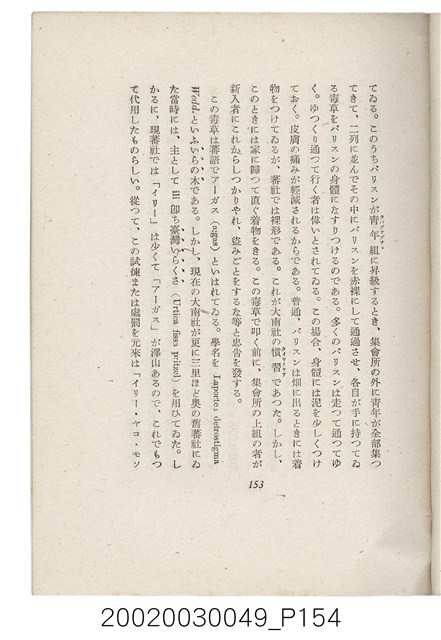 てゐる。このうちパリスンが青年組に昇級するとき、集會所の外に青年が全部集つ
てきて、二列に並んでその中にパリスンを赤裸にして通過させ、各自が手に持つてゐ
る毒草をパリスンの身體になすりつけるのである。多くのパリスンは走つて通つてゆ
く。ゆつくり通つて行く者は偉いとされてゐる。この場合、身體には泥を少しくつけ
ておく。皮膚の痛みが輕減されるからである。普通、パリスンは畑に出るときには着
物をつけてゐるが、蕃社では裸形である。これが大南社の慣習であつた。しかし、
このときには家に歸つて直ぐ着物をきる。この毒草で叩く前に、集會所の上組の者が
新入者にこれからしつかりやれ、盜みごとをするな等と忠告を發する。
この毒草は蕃語でアーガス (agas) といはれてゐる。學名を Laportea detrostigma
Wedd といふいらの木である。しかし、現在の大南社が更に三里ほど奥の舊蕃社にゐ
た當時には、主として ili 即ち臺灣いらくさ (Urtica fissa pritzel) を用ひてゐた。し
かるに、現蕃社では「イリー」は少くて「アーガス」が澤山あるので、これでもつ
て代用したものらしい。從つて、この試煉または處罰を元來は「イリー・ヤコ・モソ
153
20020030049_P154